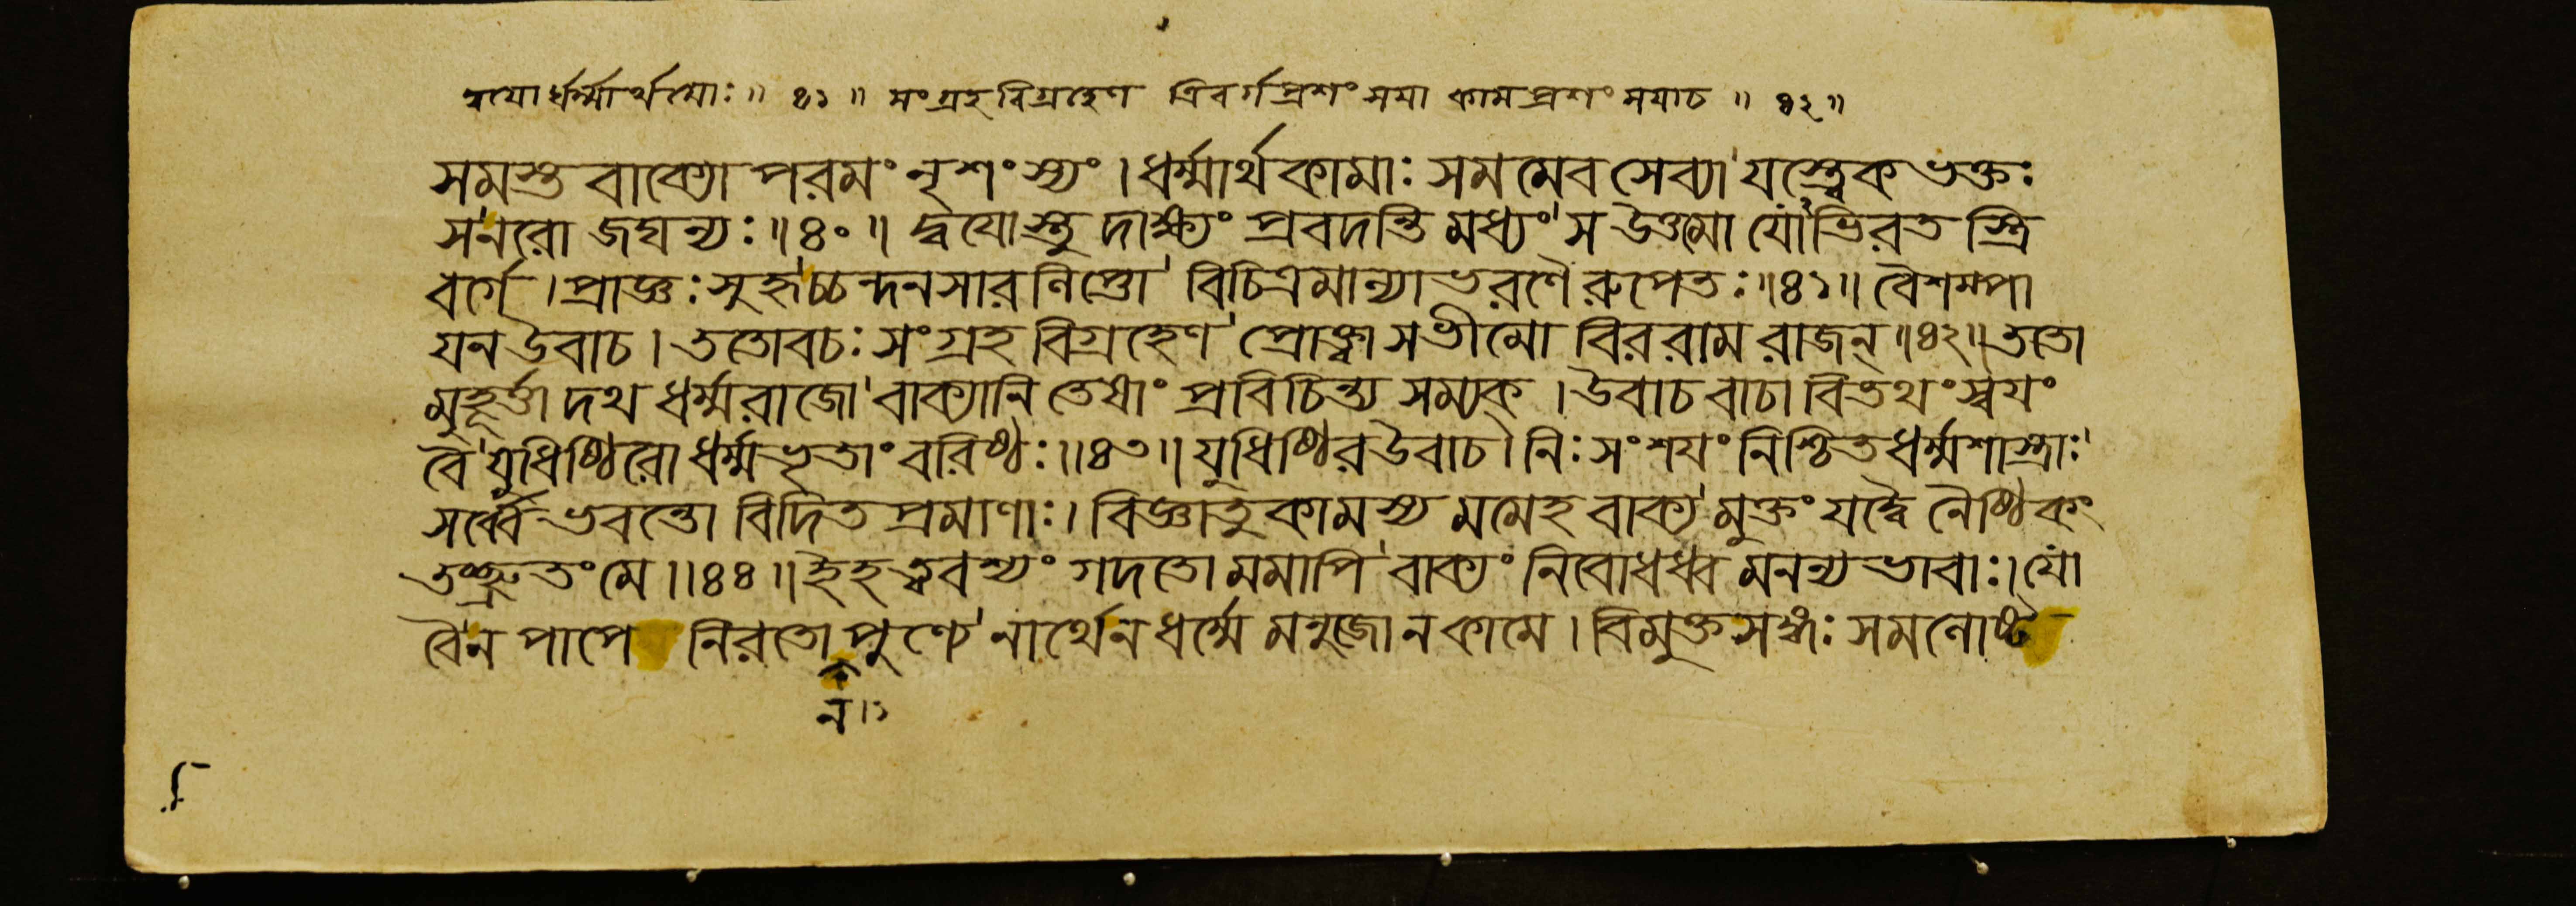 দ্বযোর্ধর্ম্মার্থযোঃ॥ ৪১॥ সংগ্রহবিগ্রহেণ ত্রিবর্গপ্রশংসযা কামপ্রশংসযাচ॥ ৪২॥
সমস্তবাক্যো পরমং নৃশংস্যং। ধর্ম্মার্থকামাঃ সমমেব সেব্যা যস্ত্বেকভক্তঃ
সনরো জঘন্যঃ॥৪০॥ দ্বযোস্তু দাক্ষ্যং প্রবদন্তি মধ্যং স উত্তমো যোভিরতস্ত্রি
বর্গে। প্রাজ্ঞঃ সুহৃচ্চন্দনসারলিপ্তো বিচিত্রমাল্যাভরণৈরুপেতঃ॥৪১॥ বৈশম্পা
যন উবাচ। ততোবচঃ সংগ্রহবিগ্রহেণ প্রোক্ত্বা সভীমো বিররাম রাজন্॥৪২॥ ততো
মুহূর্ত্তাদথ ধর্ম্মরাজো বাক্যানি তেষাং প্রবিচিন্ত্য সম্যক্। উবাচ বাচা বিতথং স্বযং
বৈ যুধিষ্ঠিরো ধর্ম্মভৃতাং বরিষ্ঠঃ॥৪৩॥ যুধিষ্ঠির উবাচ। নিঃসংশযং নিশ্চিতধর্ম্মশাস্ত্রাঃ
সর্ব্বে ভবন্তো বিদিতপ্রমাণাঃ। বিজ্ঞাতুকামস্য মমেহ বাক্য মুক্তং যদ্বৈ নৈষ্ঠিকং
তংশ্রুতং মে॥৪৪॥ ইহ ত্ববশ্যং গদতো মমাপি বাক্যং নিবোধধ্ব মনন্যভাবাঃ। যো
বৈ ন পাপে নিরতো পুণ্যে নার্থে ন ধর্ম্মে মনুজো ন কামে। বিমুক্তসঙ্গঃ সমলোষ্ট
ন।১